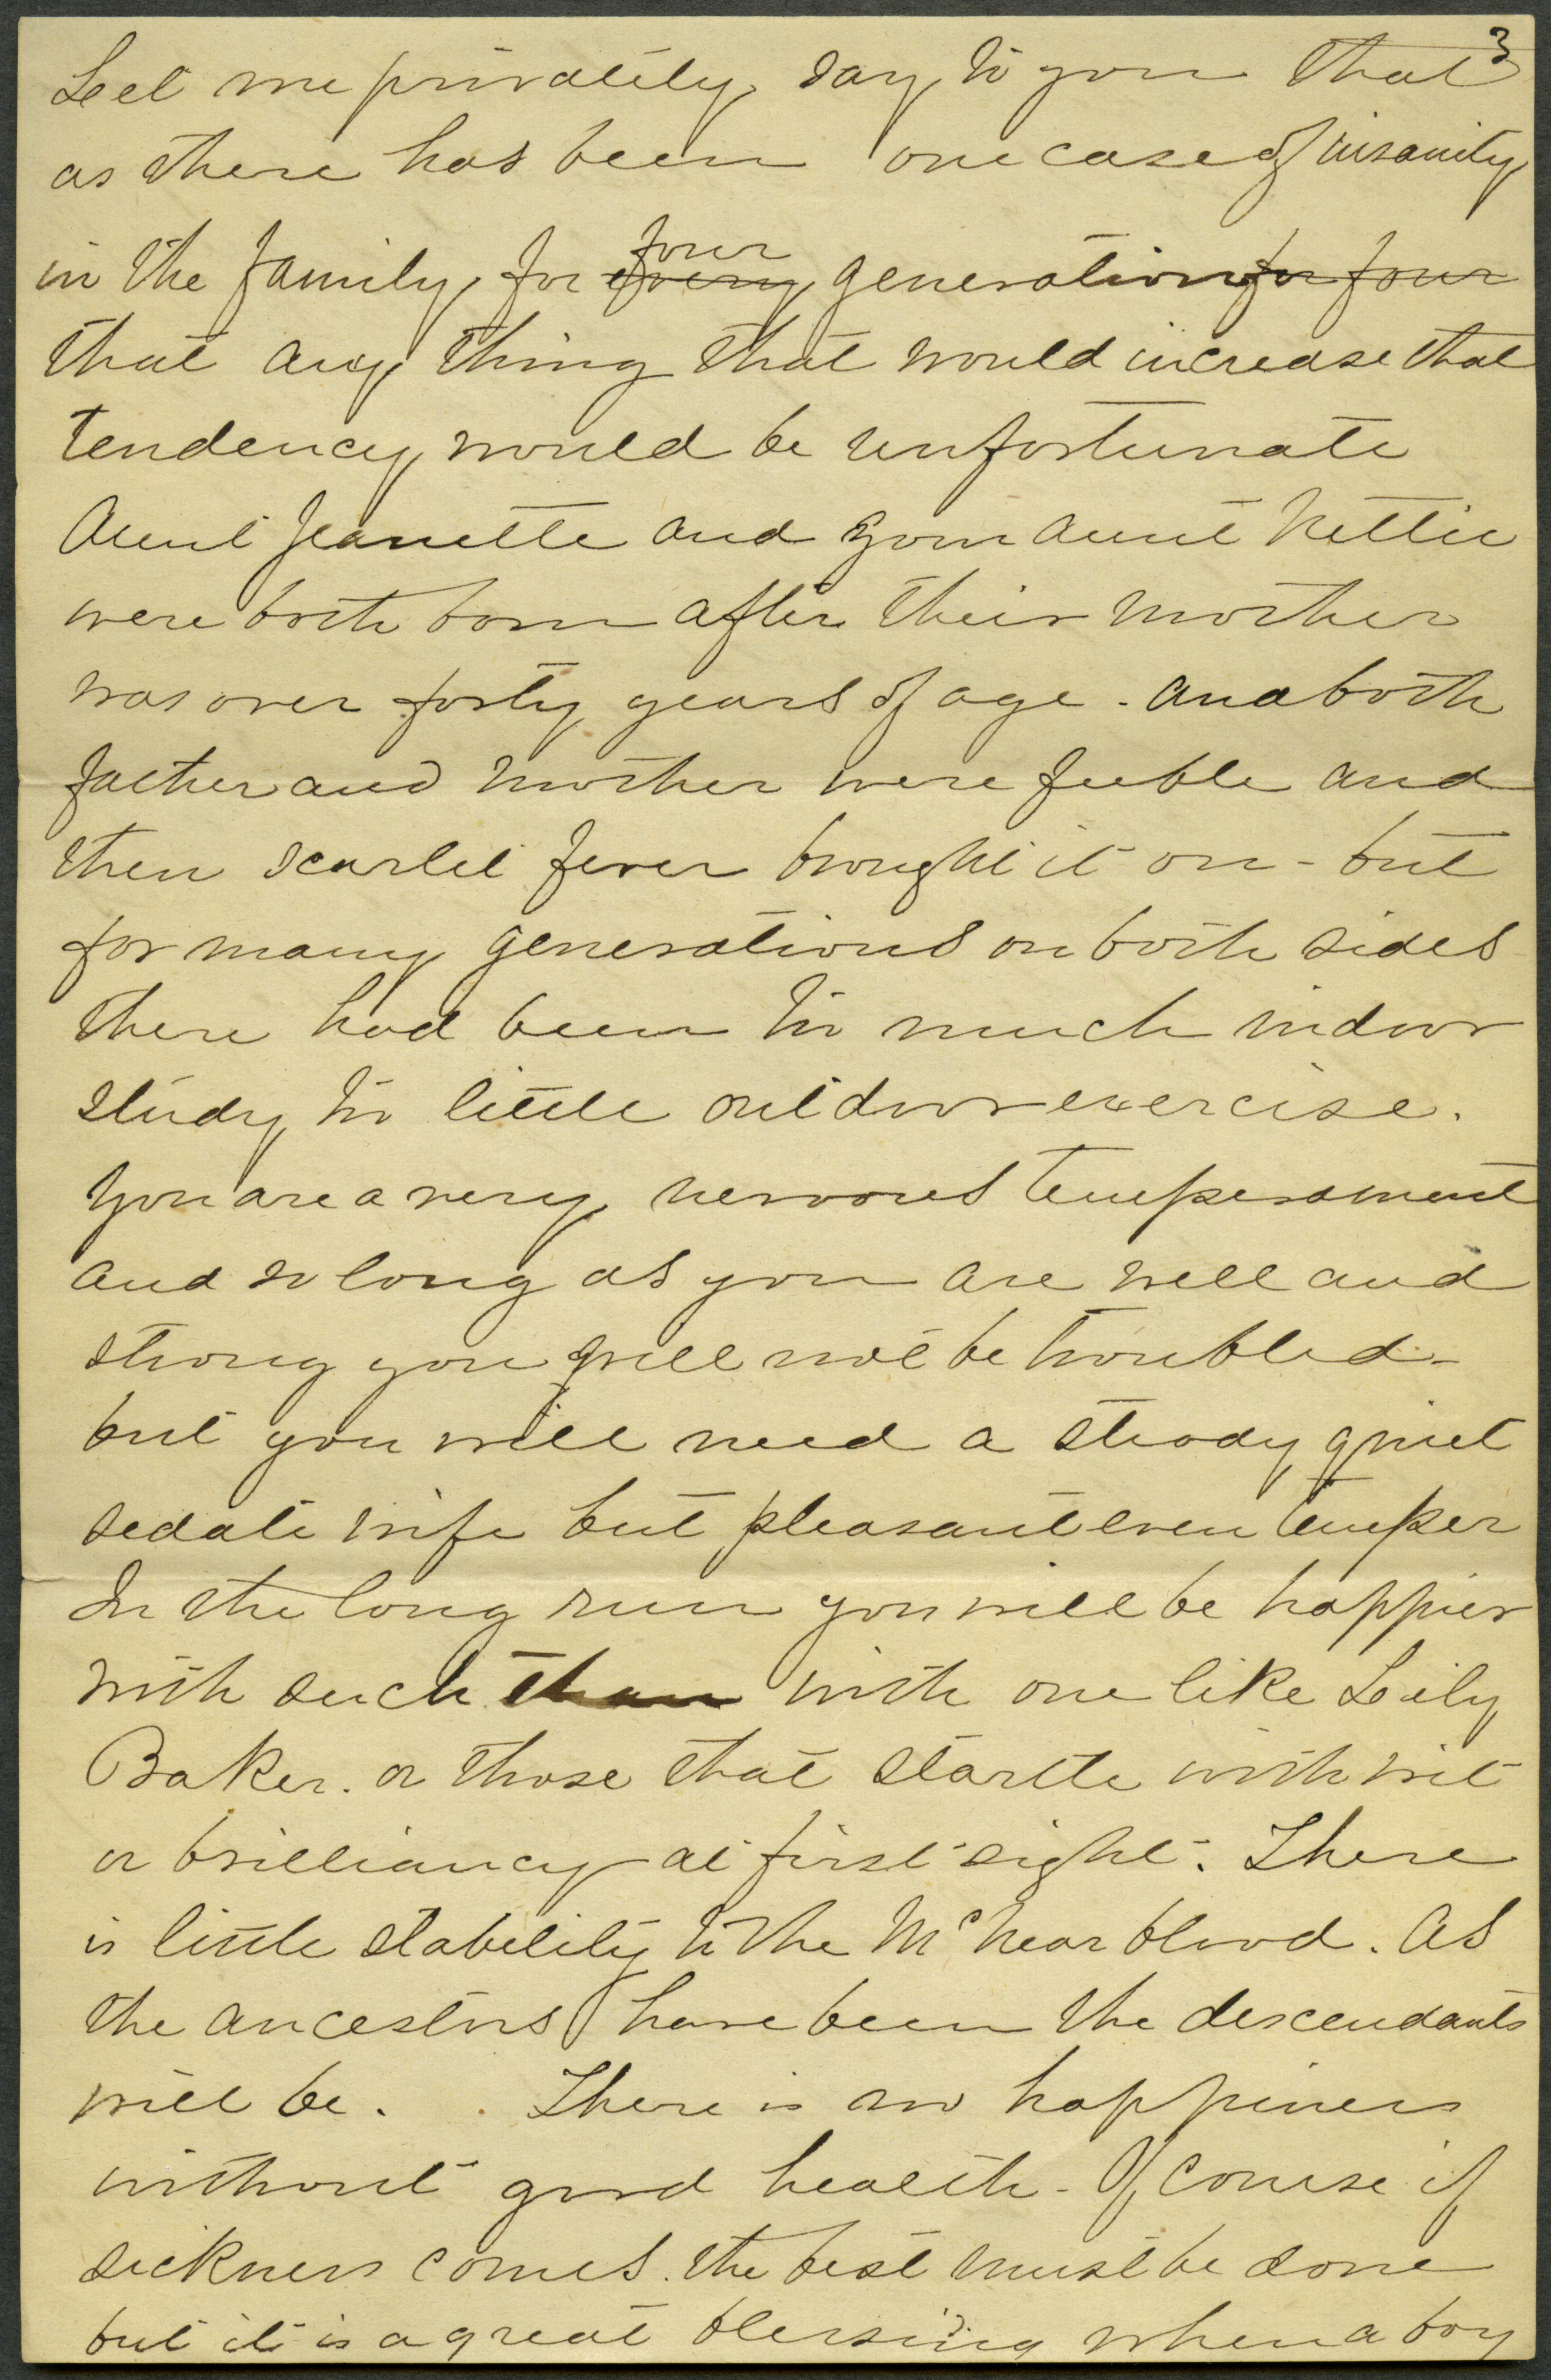 3
Let me privately say to you that
as there has been one case of insanity
in the family, for four every generation for four
that any thing that would increase that
tendency would be unfortunate
Aunt Jeanette and your aunt Nettie
were both born after their mother
was over forty years of age. and both
father and mother were feeble and
then scarlet fever brought it on - but
for many generations on both sides
there had been too much indoor
study too little outdoor exercise.
You are a very nervous temperament
and so long as you are well and
strong you will not be troubled -
but you will need a steady quiet
sedate wife but pleasant even temper
In the long run you will be happier
with such than with one like Lily
Baker. or those that startle with wit
or brilliancy at first sight. There
is little stability to the McNear blood. As
the ancestors have been the descendants
will be. There is no happiness
without good health - Of course if
sickness comes. the best must be done
but it is a great blessing when a boy